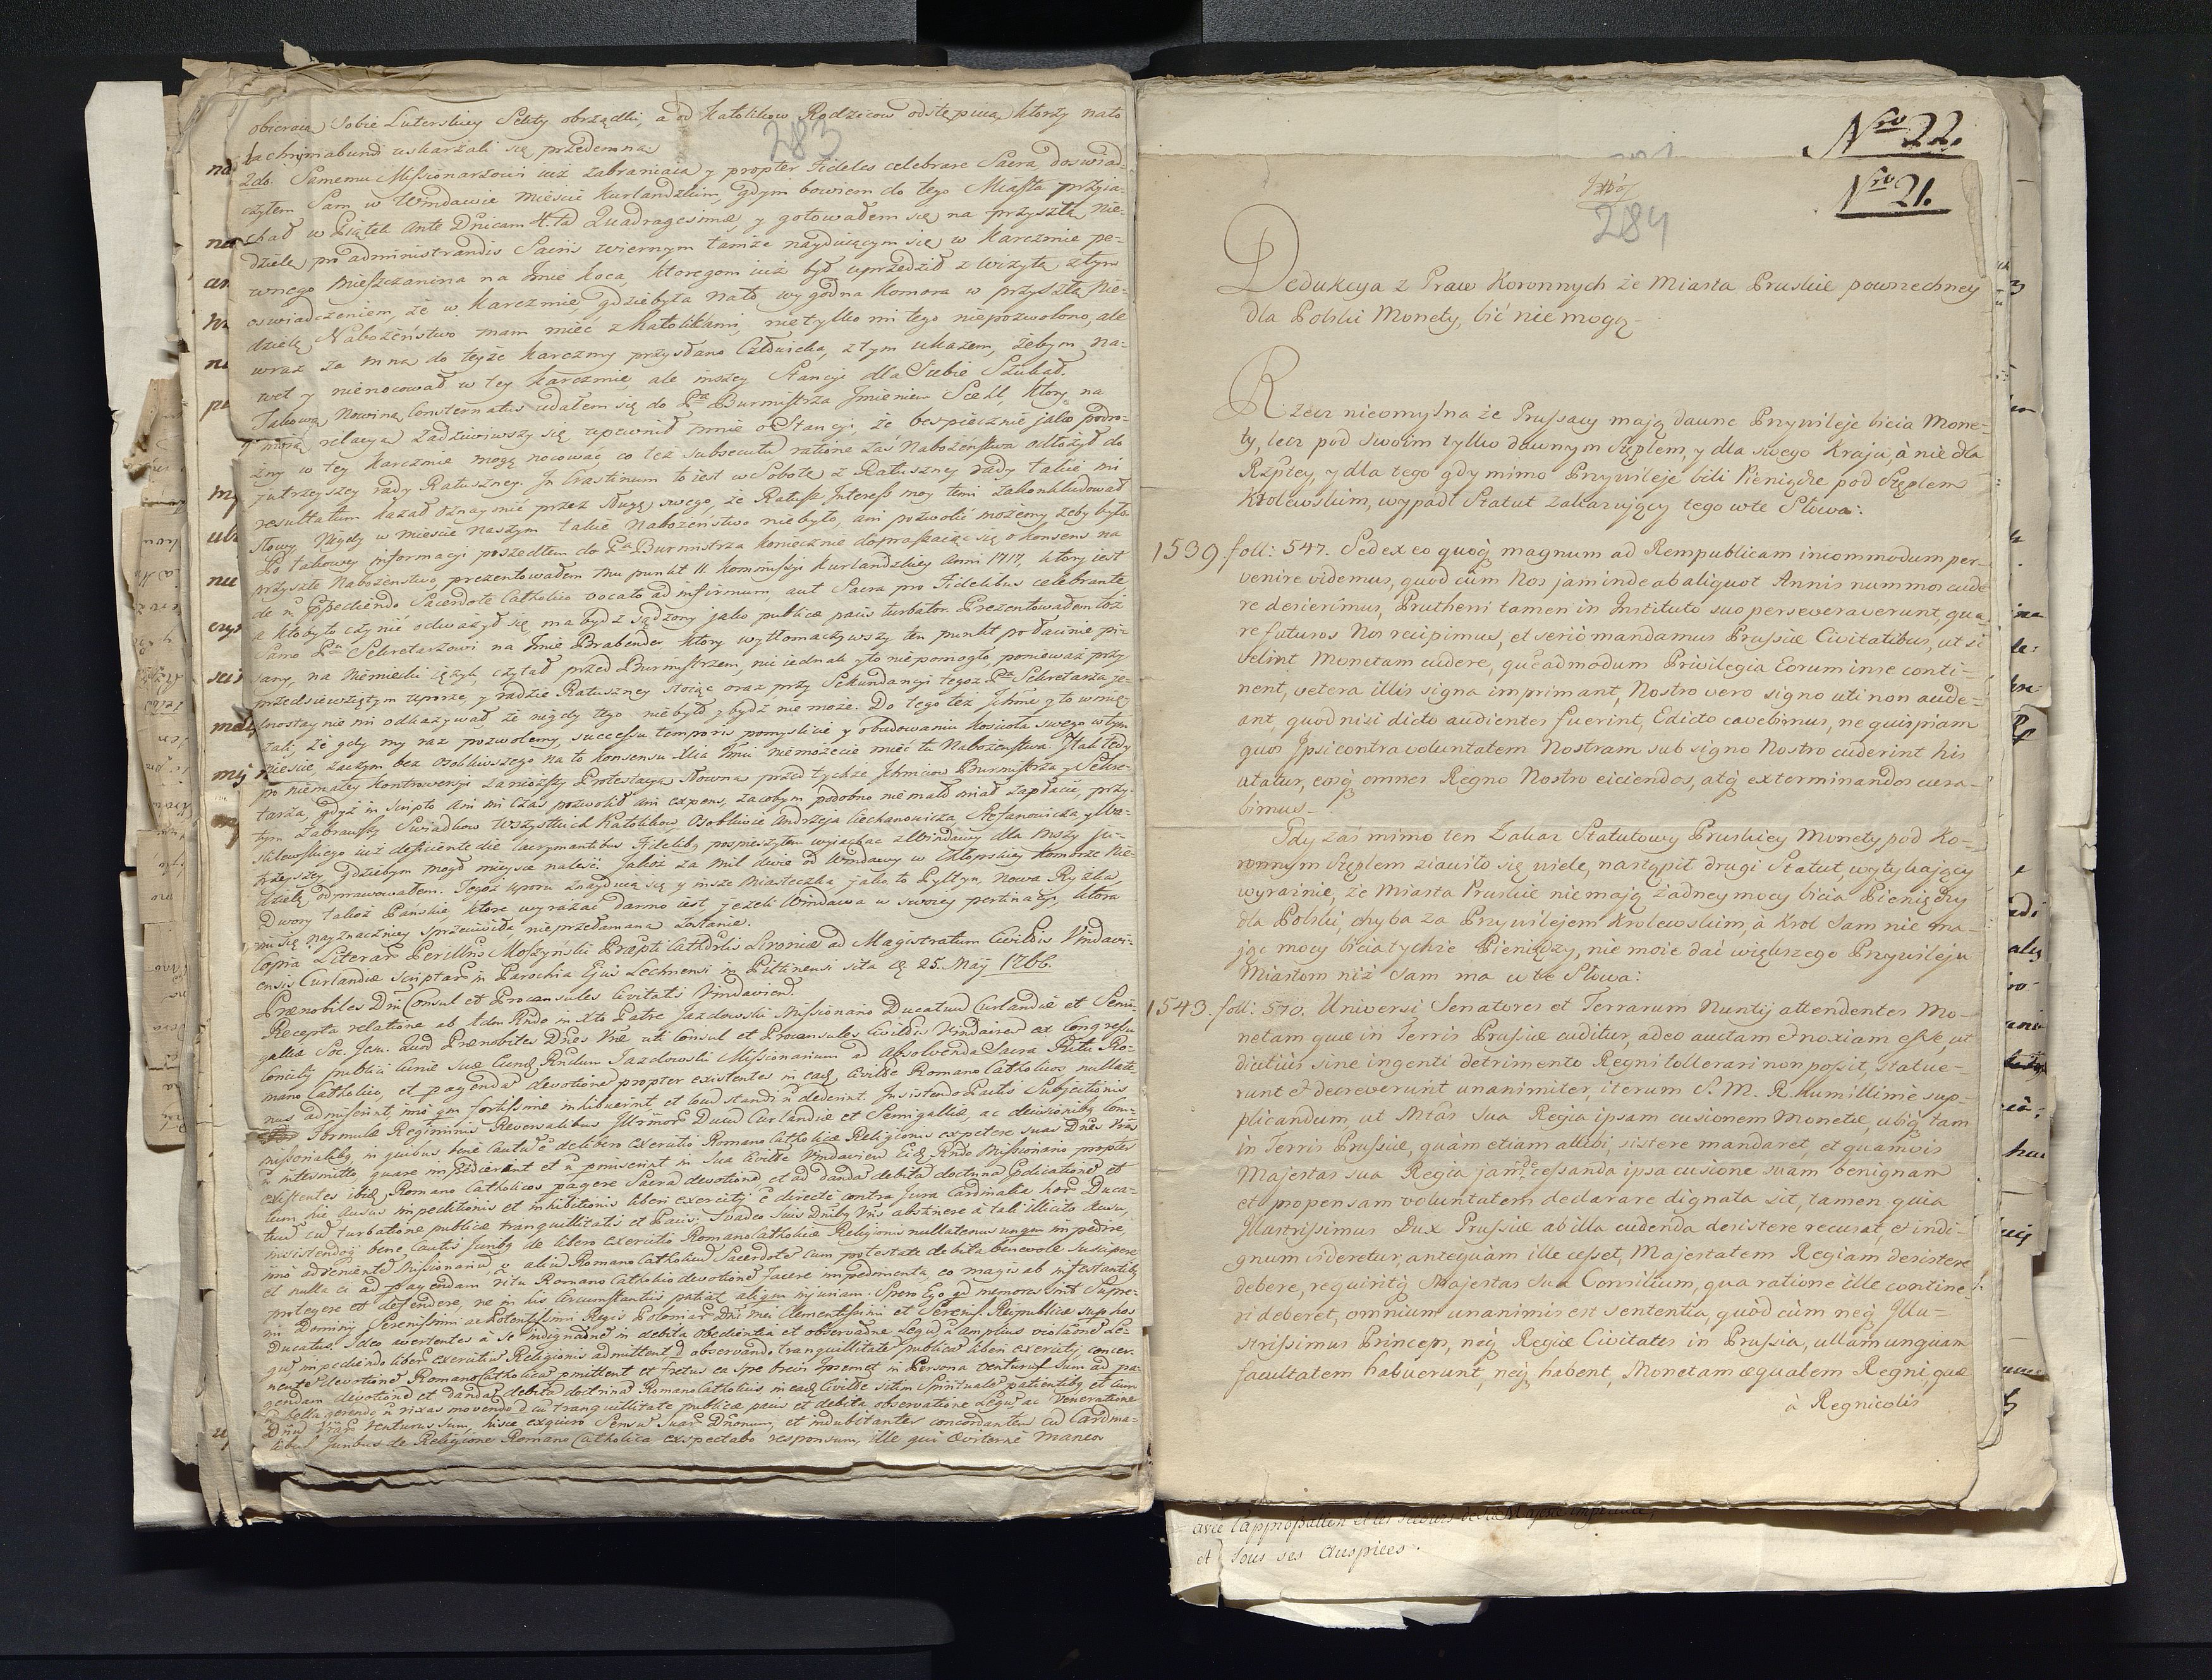 283
obieraią Sobie Luterskiey Sekty obrządki, a od Katolikow Rodzicow odstępuią, ktorzy nato
lachrymabundi uskarżali się przedemną.
2do. Samemu Missionarzowi iuż zabraniaią y propter Fideles celebrare Sacra, doswiad-
czyłem Sam w Windawie mieście Kurlandzkim, gdym bowiem do tego Miasta przyia-
chał w Piątek ante Dnicam 4ta Quadragesimæ, y gotowałem się na przyszłą Nie-
dzielę pro administrandis Sacris wiernym tamże nayduiącym się w Karczmie pe-
wnego Mieszczanina na Jmie Koca, ktoregom iuż był uprzedził z wizytą z tym
oswiadczeniem, że w Karczmie, gdzie była nato wygodna Komora w przyszłą Nie-
dzielę Nabożeństwo mam mieć z Katolikami, nie tylko mi tego niepozwolono, ale
wraz za mną do teyże Karczmy przysłano Człowieka, z tym ukazem, żebym na-
wet y nienocował w tey Karczmie, ale inszey Stancyi dla Siebie Szukał.
Takową Nowiną Consternatus udałem się do Pa Burmistrza Jmieniem Sell, ktory na
moią relacyą zadziwiwszy się upewnił mnie o Stancyi, że bespiecznie jako podro-
żny w tey Karczmie mogę nocować, co też subsecutũ ratione zaś Nabożeństwa odłożył do
jutrzeyszey rady Ratuszney. In Crastinum to iest w Sobotę z Ratuszney rady takie mi
resultatum kazał oznaymić przez sługę swego, że Ratusz Interess moy temi zakonkludował
słowy. Nigdy w mieście naszym takie Nabożeństwo niebyło, ani pozwolić możemy żeby było.
Po takowey informacyi poszedłem do Pa Burmistrza koniecznie dopraszaiąc się o konsens na
przyszłe Nabożeństwo, prezentowałem mu punkt 11. Kommissyi Kurlandzkiey Anni 1717, ktory iest
de ñ Jmpediendo Sacerdote Catholico vocato ad infirmum, aut Sacra pro Fidelibus celebrante
a ktoby to czynić odważył się, ma bydź sądzony jako publicæ pacis turbator. Prezentowałem toż
samo Pu Sekretarzowi na Jmie Brabender ktory wytłomaczywszy ten punkt po Łacinie pi-
sany, na Niemiecki ięzyk, czytał przed Burmistrzem, nic iednak y to niepomogło, ponieważ przy
przedsiewziętym uporze, y radzie Ratuszney stoiąc oraz przy Sekundancyi tegoż Pa Sekretarza je-
dnostaynie mi odkazywał, że nigdy tego niebyło y bydź nie może. Do tego też Jchmć y to wnie-
zali, że gdy my raz pozwolemy, successu temporis pomyslicie y obudowaniu Kosciola swego w tym
Miescie, zaczym bez osobliwszego na to konsensu Xcia Jmci niemożecie mieć tu Nabożeństwa. Jtak tedy
po niemałey kontrowersyi zaniosłszy Protestacyą słowną przed tychże Jchmciow Burmistrza y Sekre-
tarza, gdyż in scripto ani mi czas pozwolił ani expens, zacobym podobno niemało miał zapłacić, przy-
tym zabrawszy Swiadkow wszystkich Katolikow, osobliwie Andrzeja Ciechanowicza, Stefanowicza y Wa-
silewskiego iuż deficiente die lacrymantibus Fidelibq pospieszyłem wyiachac z Windawy dla Mszy ju-
trzeyszey gdziebym mogł mieysce naleść. Jakoż za mil dwie od Windawy w Chłopskiey Komorze Nie-
dzielę odprawowałem. Tegoż uporu znayduią się y insze Miasteczka jako to Pyltyn, Nowa Ryzka
Dwory takoż Pańskie, ktore wyrażać darmo iest jeżeli Windawa w swoiey pertinacyi, ktora
mi się nayznaczniey sprzeciwiła, nieprzełamana zostanie.
Copia Literar Perillris Moszyński Præpti Cathdrlis Livoniæ ad Magistratum Civitis Vindavi-
ensis Curlandiæ scriptar in Parochia Ejus Lechnensi in Piltinensi sita de 25. Maij 1766.
Prænobiles Dñi Consul et Proconsules Civitatis Vindavien̄.
Recepta relatione ab Adm Rndo in Xto Patre Jazdowski Missionario Ducatuũ Curlandiæ et Semi-
galliæ Soc. Jesu. Quod Prænobiles Dnes Vræ uti Consul et Proconsules Civitis Vindavien̄ ex Congressu
Concilij publici Curiæ suæ Eundē Rndum Jazdowski Missionarium ad absolvenda Sacra Ritu Ro-
mano Catholico, et pagendā devotionē propter existentes in eadē Civitte Romano Catholicos nullate-
nus admiserint, imò qm fortissime inhibuerint et locũ standi ñ dederint. Insistendo Pactis Subjectionis
Formulæ Regiminis Reversalibus Jllrimor Ducũ Curlandiæ et Semigalliæ, ac decisionibq Com-
missorialibq in quibus bene cautũ ē de libero exercitio Romano Catholicæ Religionis expetere suas Dnes Vras
ñ intermitto, quare impedierint et ñ permiserint in sua Civitte Vindavien̄ eidē Rndo Missionario propter
existentes ibidē Romano Catholicos pagere Sacra devotionē et ad dandā debitā doctrinā Explicationē et
cum hic Ausus impeditionis et inhibitionis liberi exercitij ē directè contra Jura Cardinalia hor Duca-
tuũ cũ turbatione publicæ tranquillitatis et Pacis. Svadeo suis Dnibq Vris abstinere à tali illicito Ausu,
insistendoq bene Cautis Juribq de libero exercitio Romano Catholicæ Religionis nullatenus unqm impedire,
imò advenientē Missionariũ v aliũ Romano Catholicũ Sacerdotē cum potestate debita benevole suscipere
et nulla ei ad pagendam ritu Romano Catholico devotionē facere impedimenta, eo magis ab infestantibq
protegere et defendere, ne in his circumstantiis patiat aliqm injuriam. Spero Ego qd memores sint Supre-
mi Dominij Serenissimi ac Potentissimi Regis Poloniar Dni mei Clementissimi et Sereniss Reipublicæ sup hos
Ducatus. Ideo avertentes à se indignationē in debita obedientia et observatione Legũ ñ amplius violationē Le-
gũ, impediendo liberũ exercitiũ Religionis admittent d observando tranquillitatē publicā liberi exercitij concer-
nente devotionē Romano Catholicā pmittent et fretus ea spe brevi Jpsemet in Persona venturus sum ad pa-
gendam devotionē et dandā debitā doctrinā Romano Catholicis in eadē Civitte sitim Spiritualē patientibq et cum
ñ bella gerendo ñ rixas movendo d cũ tranquillitate publica pacis et debita observatione Legũ ac Veneratione
Dnũ Vrar venturus sum, hisce exquiro Sensũ suar Dnonum, et indubitanter concordantem cũ Cardina-
libus Juribus de Religione Romano Catholica exspectabo responsum, ille qui æviternè maneo
Nro 22.
Nro 21.
284
Dedukcya z Praw Koronnych że Miasta Pruskie powszechney
dla Polski Monety, bić nie mogą.
Rzecz nieomylna że Prussacy mają dawne Przywileje bicia Mone-
ty, lecz pod swoim tylko dawnym Stęplem, y dla swego Kraju, à nie dla
Rzpltey, y dla tego gdy mimo Przywileje bili Pieniądze pod Stęplem
Krolewskim, wypadł Statut zakazujący tego w te Słowa:
1539 foll: 547. Sed ex eo quoq̷ magnum ad Rempublicam incommodum per-
venire videmus, quod cùm Nos jam inde ab aliquot Annis nummos cude-
re desierimus, Prutheni tamen in Instituto suo perseveraverunt, qua-
re futuros Nos recipimus, et seriò mandamus Prussiæ Civitatibus, ut si
velint Monetam cudere, quēadmodum Privilegia Eorum inse conti-
nent, vetera illis signa imprimant, Nostro vero signo uti non aude-
ant, quod nisi dicto audientes fuerint, Edicto cavebimus, ne quispiam
quos Ipsi contra voluntatem Nostram sub signo Nostro cuderint his
utatur, eosq̷ omnes Regno Nostro eiciendos, atq̷ exterminandos cura-
bimus.
Gdy zaś mimo ten Zakaz Statutowy Pruskiey Monety pod Ko-
ronnym Stęplem ziawiło się wiele, nastąpił drugi Statut, wytykający
wyraźnie, że Miasta Pruskie nie mają żadney mocy bicia Pieniędzy
dla Polski, chyba za Przywilejem Krolewskim, à Krol Sam nie ma-
jąc mocy bicia tychże Pieniędzy, nie może dać większego Przywileju
Miastom niż Sam ma w te Słowa:
1543. foll: 570. Universi Senatores et Terrarum Nuntij attendentes Mo-
netam quæ in Terris Prussiæ cuditur, adeo auctam & noxiam esse, ut
diutiùs sine ingenti detrimento Regni tollerari non possit, statue-
runt & decreverunt unanimiter, iterum S. M. R. humillimè sup-
plicandum, ut Mtās Sua Regia ipsam cusionem Monetæ, ubiq̷ tam
in Terris Prussiæ, quàm etiam alibi, sistere mandaret, et quamvis
Majestas Sua Regia jam de cessanda ipsa cusione suam benignam
et propensam voluntatem declarare dignata sit, tamen quia
Illustrissimus Dux Prussiæ ab illa cudenda desistere recusat, et indi-
gnum videretur, antequàm ille cesset, Majestatem Regiam desistere
debere, requiritq̷ Majestas Sua Consilium, qua ratione ille contine-
ri deberet, omnium unanimis est sententia, quòd cùm neq̷ Illu-
strissimus Princeps, neq̷ Regiæ Civitates in Prussia, ullam unquam
facultatem habuerunt, neq̷ habent, Monetam æqualem Regni, quæ
à Regnicolis
avec l'approbation et les secours de sa Majesté impériale,
et sous ses Auspices.